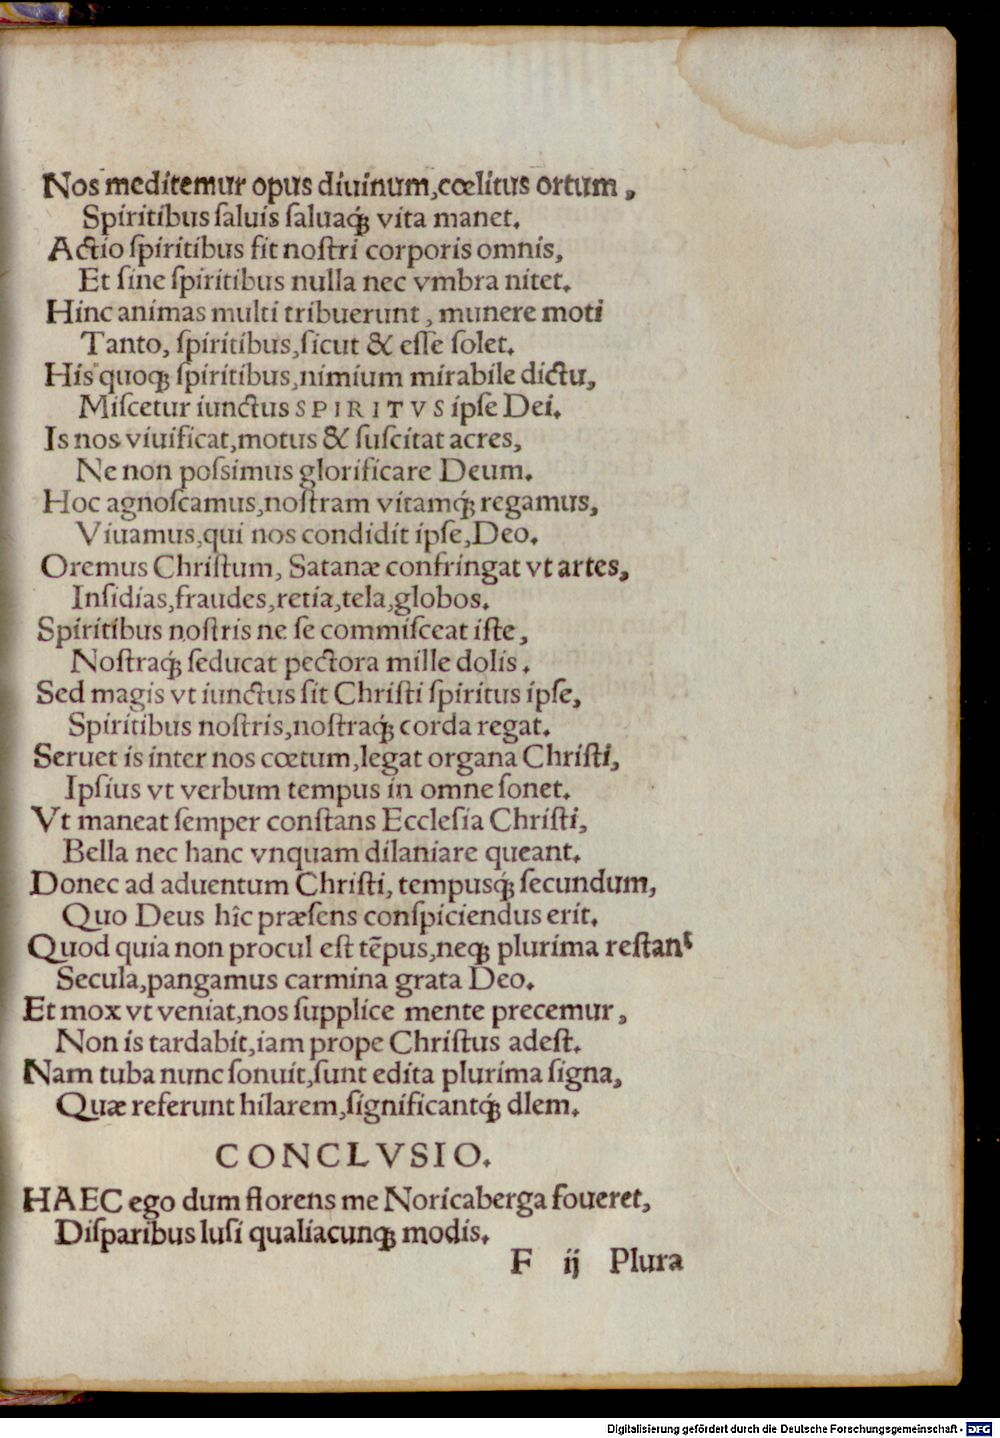 Nos meditemur opus diuinum,cœlitus ortum ,
Spiritibus ſaluis ſaluaq́ꝫ vita manet.
Actio ſpiritibus fit noſtri corporis omnis,
Et ſine ſpiritibus nulla nec vmbra nitet.
Hinc animas multi tribuerunt , munere moti
Tanto, ſpiritibus,ſicut & eſſe ſolet.
His quoqꝫ ſpiritibus,nimium mirabile dictu,
Miſcetur iunctus SPIRITVS ipſe Dei.
Is nos viuificat,motus & ſuſcitat acres,
Ne non poſsimus glorificare Deum.
Hoc agnoſcamus,noſtram vitamq́ꝫ regamus,
Viuamus,qui nos condidit ipſe,Deo.
Oremus Chriſtum, Satanæ confringat vt artes,
Inſidias,fraudes,retia,tela,globos.
Spiritibus noſtris ne ſe commiſceat iſte ,
Noſtraq́ꝫ ſeducat pectora mille dolis .
Sed magis vt iunctus ſit Chriſti ſpiritus ipſe,
Spiritibus noſtris,noſtraq́ꝫ corda regat.
Seruet is inter nos cœtum,legat organa Chriſti,
Ipſius vt verbum tempus in omne ſonet.
Vt maneat ſemper conſtans Eccleſia Chriſti,
Bella nec hanc vnquam dilaniare queant.
Donec ad aduentum Chriſti, tempusq́ꝫ ſecundum,
Quo Deus hîc præſens conſpiciendus erit.
Quod quia non procul eſt tẽpus,neqꝫ plurima reſtant
Secula,pangamus carmina grata Deo.
Et mox vt veniat,nos ſupplice mente precemur ,
Non is tardabit,iam prope Chriſtus adeſt.
Nam tuba nunc ſonuit,ſunt edita plurima ſigna,
Quæ referunt hilarem,ſignificantq́ꝫ dlem.
CONCLVSIO.
HAEC ego dum florens me Noricaberga foueret,
Diſparibus luſi qualiacunqꝫ modis.
F ij Plura
Digitalisierung gefördert durch die Deutsche Forschungsgemeinschaft - DFG